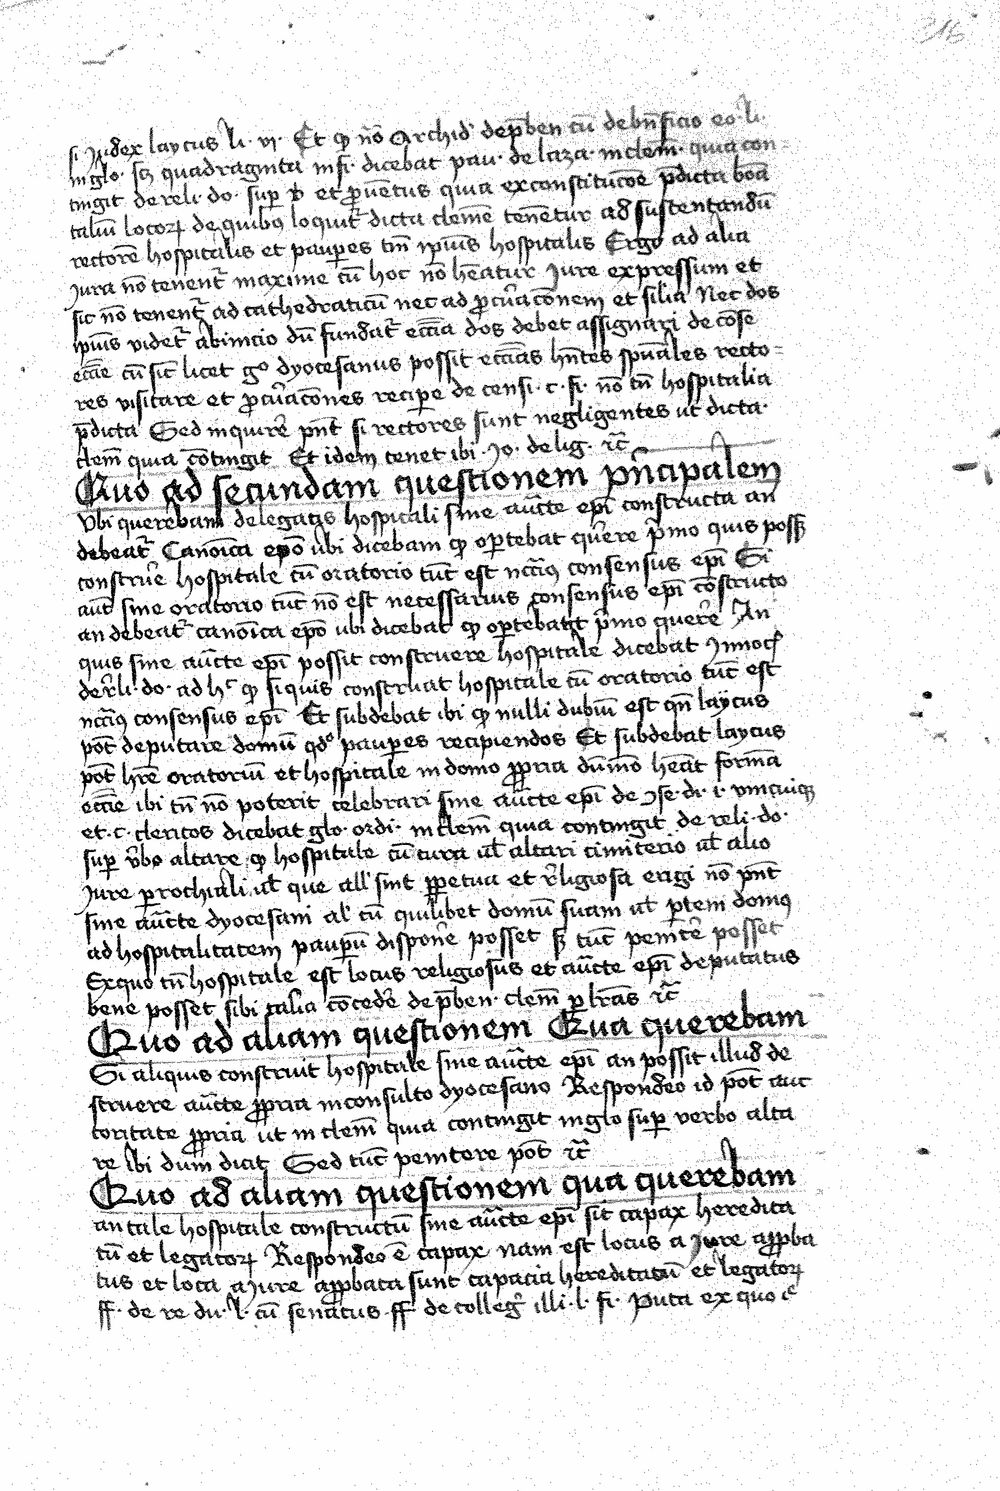 si Judex laycus li. vi. Et qͥ nō Archid' dep̄ben cū debn̄ficio eo. li.
in glo. sꝫ quadraginta in fi. dicebat pau. de laza. in clem̄. quia con=
tingit de reli. do. sup v̄ et ꝓuētus quia ex constitucōe p̄dicta bōa
taliū locoꝝ de quibus loquit᷑ dicta clemē tenētur ad sustentandū
rectorē hospitalis et paupes tm̄ ipius hospitalis Ergo ad alia
Jura nō tenent᷑ maxime cū hoc nō hēatur Jure expressum et
sic nō tenent᷑ ad cathedraticū nec ad ꝓcuracōnem et silia Nec dos
ipius videt᷑ ab inicio dū fundat᷑ eccīa dos debet assignari de cōse
eccīe cū sit licet gͦ dyocesanus possit eccīas hn̄tes spūales recto=
res visitare et ꝓcuracōnes recipe de censi. c. fi. nō tn̄ hospitalia
p̄dicta Sed inquirē pn̄t si rectores sunt negligentes ut dicta.
clem̄ quia cōtingit Et idem tenet ibi. Jo. de lig. ⁊c̄
Quo ad secundam questionem pn̄cipalem
Vbi querebam de legatis hospitali sine auc̄te epī constructa an
debeat᷑ Canōica epō ubi dicebam qͥ oꝑtebat quere p̄mo quis possꝫ
construe hospitale cū oratorio tūc est nccīus consensus epī Si
aut sine oratorio tūc nō est necessarius consensus epī cōstructo
an debeat᷑ canōica epō ubi dicebat qͥ oꝑtebat p̄mo querē An
quis sine auc̄te epī possit construere hospitale dicebat Innoc̄
de rͤli. do. ad hͨ qͥ si quis construat hospitale cū oratorio tūc est
nccīus consensus epī Et subdebat ibi qͥ nulli dubiū est qn̄ laycus
pōt deputare domū qdͦ paupes recipiendos Et subdebat laycus
pōt hr̄e oratoriū et hospitale in domo ꝓpria dūmō hēat formā
eccīe ibi tn̄ nō poterit celebrari sine auc̄te epī de ꝯse. di. i. vnicuiqꝫ
et. c. clericos dicebat glo. ordi. in clem̄ quia contingit de reli. do.
sup v̄bo altare qͥ hospitale cū cura ul̄ altari cimiterio ul̄ alio
Jure prochiali ul̄ que all' sint ꝑpetua et rͤligiosa erigi nō pn̄t
sine auc̄te dyocesani al' cū quilibet domū suam ul̄ ꝑtem domꝰ
ad hospitalitatem paupū dispone posset sꝫ tūc penite posset
Ex quo tn̄ hospitale est locus religiosus et auc̄te epī deputatus
bene posset sibi talia cōcedē de p̄ben. clem̄ ꝑ lrās ⁊c̄
Quo ad aliam questionem Qua querebam
Si aliquis construit hospitale sine auc̄te epī an possit illud de
struere auc̄te ꝓpria inconsulto dyocesano Respondeo id pōt auc
toritate ꝓpria ut in clem̄ quia contingit in glo sup verbo alta
re ibi dum dicit Sed tūc penitere pōt ⁊c̄
Quo ad aliam questionem qua querebam
an tale hospitale constructū sine auc̄te epī sit capax heredita
tū et legatoꝝ Respondeo ē capax nam est locus a Jure apꝓba
tus et loca a Jure apꝓbata sunt capacia hereditatū et legatoꝝ
ff. de re du. l. cū senatus. ff. de colleḡ illi. l. fi. Puta ex quo